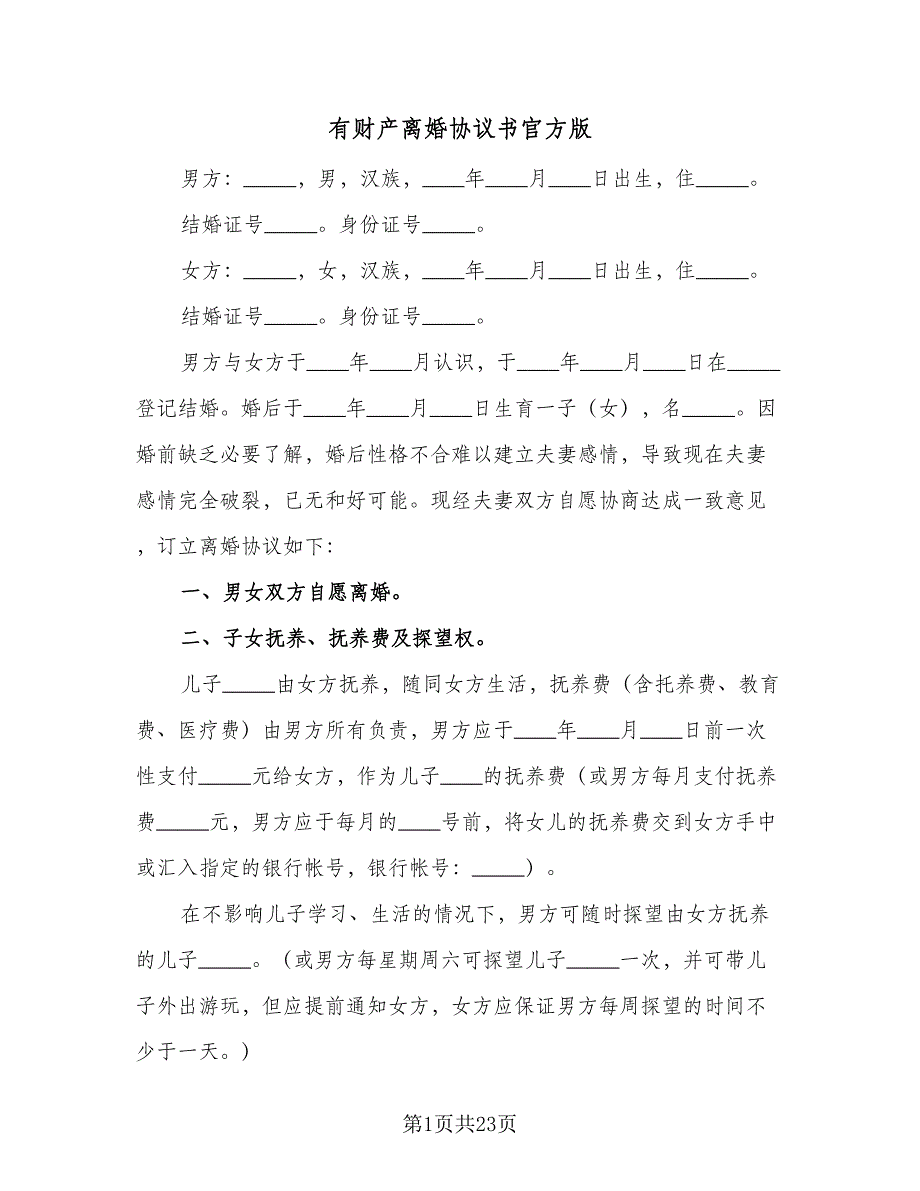 有财产离婚协议书官方版
男方：_____，男，汉族，____年____月____日出生，住_____。
结婚证号_____。身份证号_____。
女方：_____，女，汉族，____年____月____日出生，住_____。
结婚证号_____。身份证号_____。
男方与女方于____年____月认识，于____年____月____日在_____
登记结婚。婚后于____年____月____日生育一子（女），名_____。因
婚前缺乏必要了解，婚后性格不合难以建立夫妻感情，导致现在夫妻
感情完全破裂，已无和好可能。现经夫妻双方自愿协商达成一致意见
，订立离婚协议如下：
一、男女双方自愿离婚。
二、子女抚养、抚养费及探望权。
儿子_____由女方抚养，随同女方生活，抚养费（含托养费、教育
费、医疗费）由男方所有负责，男方应于____年____月____日前一次
性支付_____元给女方，作为儿子____的抚养费（或男方每月支付抚养
费_____元，男方应于每月的____号前，将女儿的抚养费交到女方手中
或汇入指定的银行帐号，银行帐号：_____）。
在不影响儿子学习、生活的情况下，男方可随时探望由女方抚养
的儿子_____。（或男方每星期周六可探望儿子_____一次，并可带儿
子外出游玩，但应提前通知女方，女方应保证男方每周探望的时间不
少于一天。）
第1页共23页